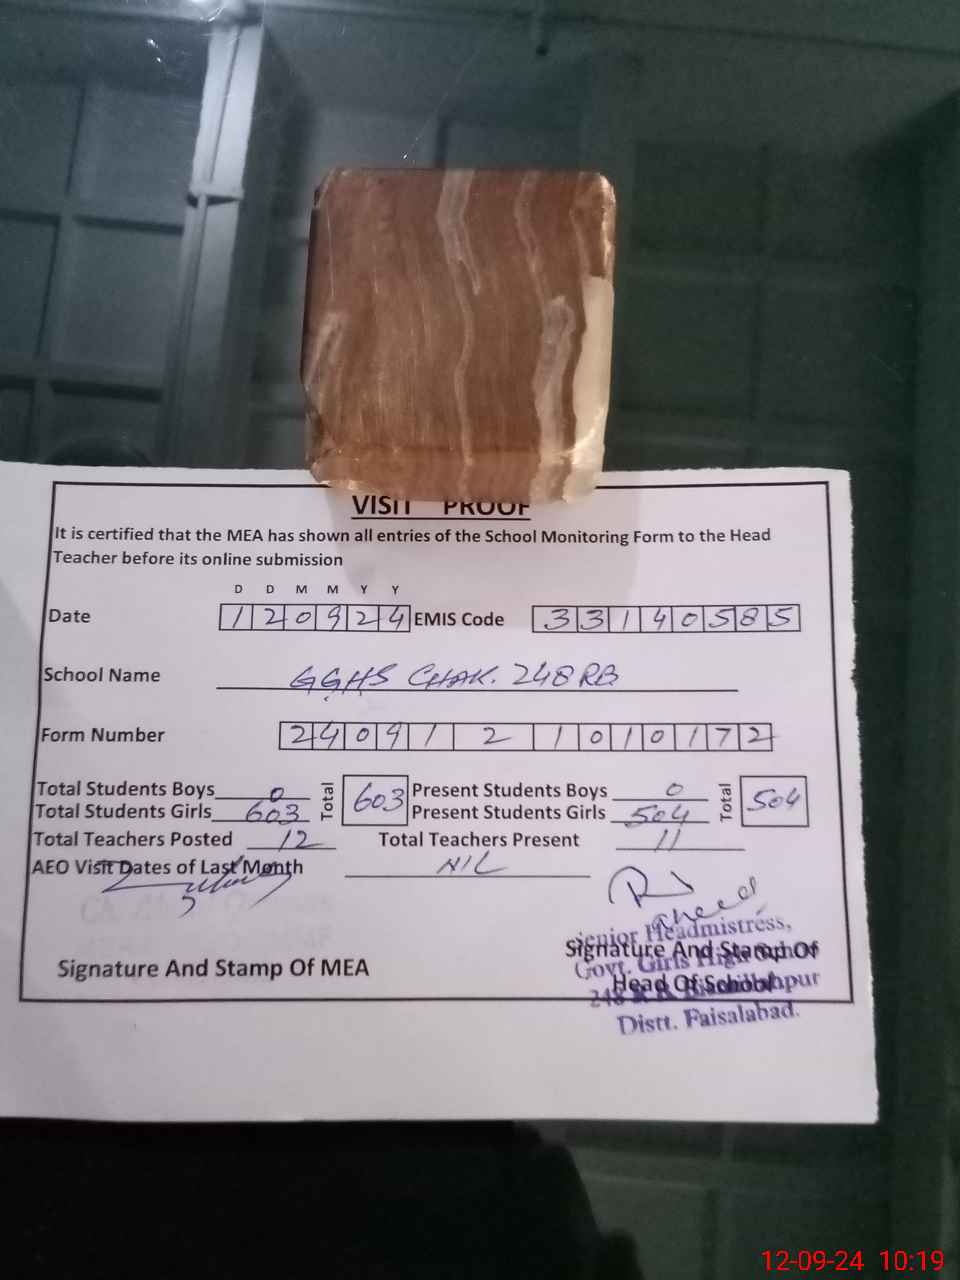 VISIT PROOF
It is certified that the MEA has shown all entries of the School Monitoring Form to the Head
Teacher before its online submission
D D M M Y Y
Date 120924 EMIS Code 33140585
School Name GGHS CHAK. 248RB
Form Number 2409121010172
Total Students Boys 0 Total 603 Present Students Boys 0 Total 504
Total Students Girls 603 Present Students Girls 504
Total Teachers Posted 12 Total Teachers Present 11
AEO Visit Dates of Last Month NIL
Senior Headmistress,
Signature And Stamp Of MEA
Signature And Stamp Of
Govt. Girls High School
Head Of School
248
Distt. Faisalabad.
12-09-24 10:19